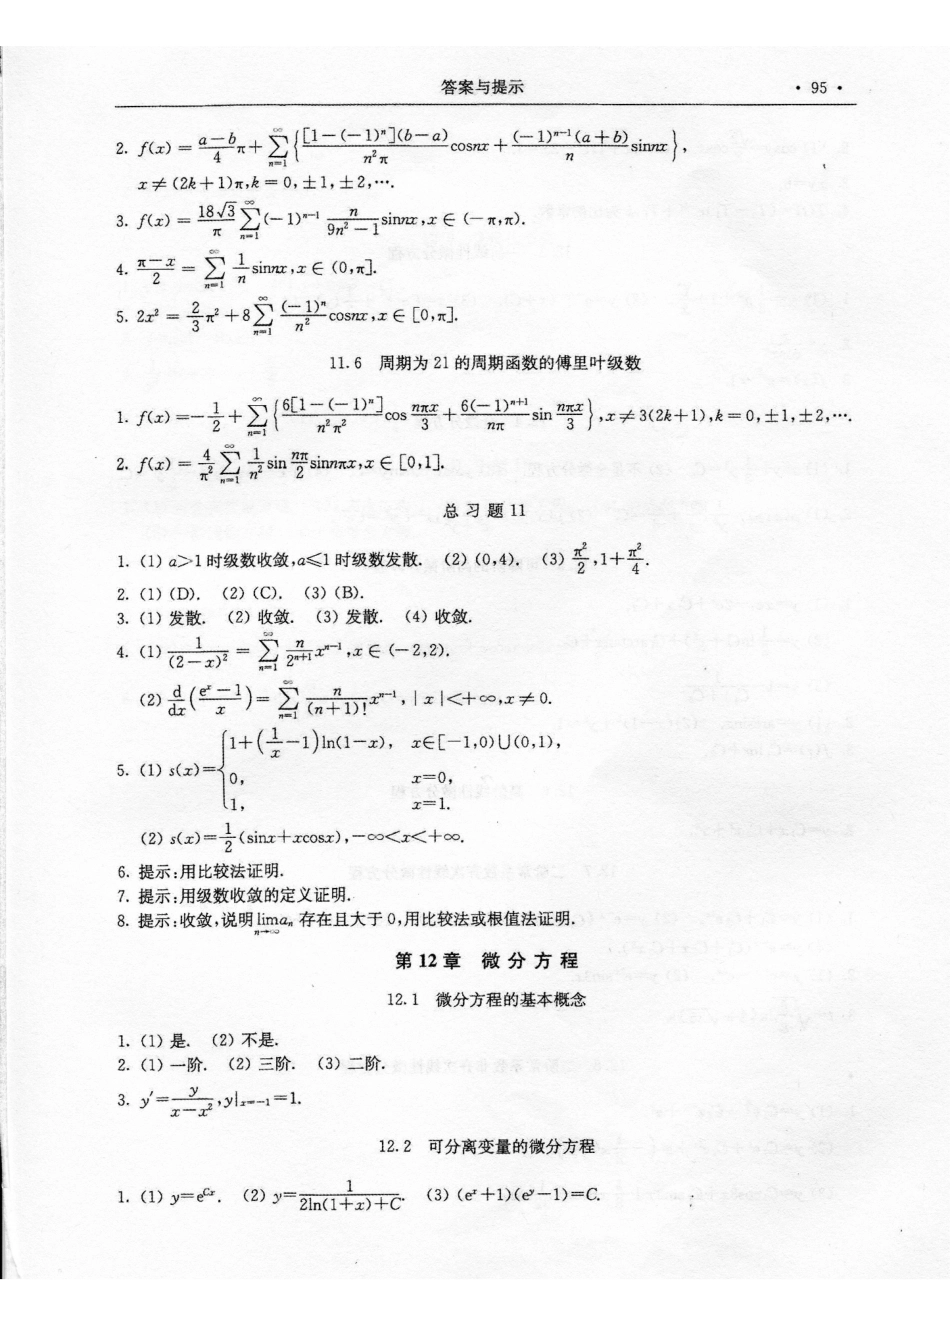 答案与提示 · 95 ·
2. f(x) = \frac{a-b}{4}π + \sum_{n=1}^{∞} { \frac{[1-(-1)^n](b-a)}{n^2π} cosnx + \frac{(-1)^{n-1}(a+b)}{n} sinnx },
x≠(2k+1)π, k=0,±1,±2,….
3. f(x) = \frac{18\sqrt{3}}{π} \sum_{n=1}^{∞} (-1)^{n-1} \frac{n}{9n^2-1} sinnx, x∈(-π,π).
4. \frac{π-x}{2} = \sum_{n=1}^{∞} \frac{1}{n} sinnx, x∈(0,π].
5. 2x^2 = \frac{2}{3}π^2 + 8\sum_{n=1}^{∞} \frac{(-1)^n}{n^2} cosnx, x∈[0,π].
11.6 周期为 2l 的周期函数的傅里叶级数
1. f(x) = -\frac{1}{2} + \sum_{n=1}^{∞} { \frac{6[1-(-1)^n]}{n^2π^2} cos\frac{nπx}{3} + \frac{6(-1)^{n+1}}{nπ} sin\frac{nπx}{3} }, x≠3(2k+1), k=0,±1,±2,….
2. f(x) = \frac{4}{π^2} \sum_{n=1}^{∞} \frac{1}{n^2} sin\frac{nπ}{2} sinnπx, x∈[0,1].
总 习 题 11
1. (1) a>1 时级数收敛,a≤1 时级数发散. (2) (0,4). (3) \frac{π^2}{2}, 1+\frac{π^2}{4}.
2. (1) (D). (2) (C). (3) (B).
3. (1) 发散. (2) 收敛. (3) 发散. (4) 收敛.
4. (1) \frac{1}{(2-x)^2} = \sum_{n=1}^{∞} \frac{n}{2^{n+1}} x^{n-1}, x∈(-2,2).
(2) \frac{d}{dx}(\frac{e^x-1}{x}) = \sum_{n=1}^{∞} \frac{n}{(n+1)!} x^{n-1}, |x|<+∞, x≠0.
5. (1) s(x) = { 1+(\frac{1}{x}-1)ln(1-x), x∈[-1,0)∪(0,1),
0, x=0,
1, x=1.
(2) s(x) = \frac{1}{2}(sinx+xcosx), -∞<x<+∞.
6. 提示:用比较法证明.
7. 提示:用级数收敛的定义证明.
8. 提示:收敛,说明 \lim_{n→∞} a_n 存在且大于 0,用比较法或根值法证明.
第 12 章 微 分 方 程
12.1 微分方程的基本概念
1. (1) 是. (2) 不是.
2. (1) 一阶. (2) 三阶. (3) 二阶.
3. y' = \frac{y}{x-x^2}, y|_{x=-1}=1.
12.2 可分离变量的微分方程
1. (1) y=e^{Cx}. (2) y=\frac{1}{2ln(1+x)+C}. (3) (e^x+1)(e^y-1)=C.